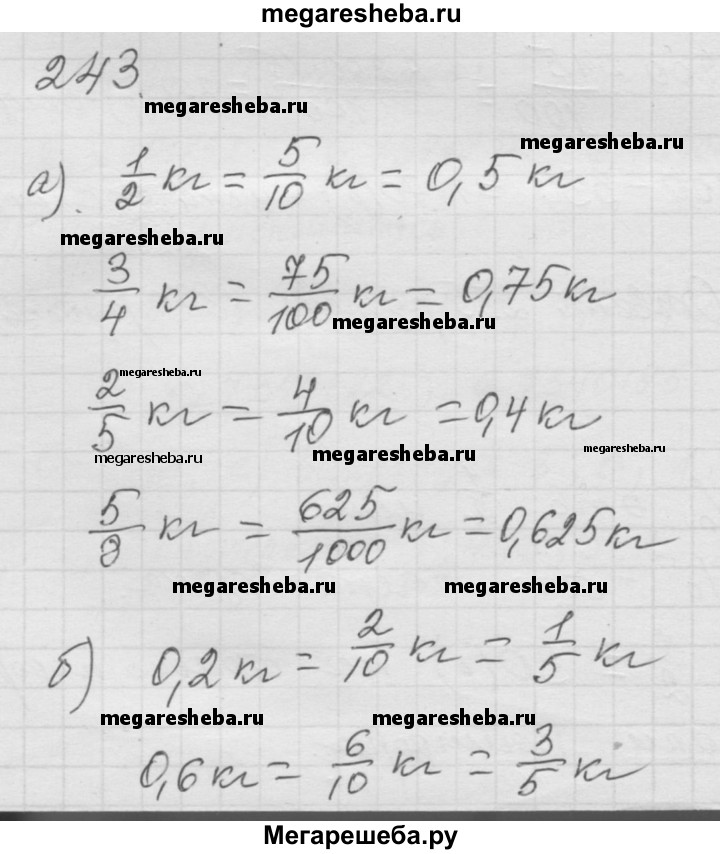 megaresheba.com
243.
megaresheba.com
megaresheba.com
а). 1/2 кг = 5/10 кг = 0,5 кг
megaresheba.com
3/4 кг = 75/100 кг = 0,75 кг
megaresheba.ru
megaresheba.ru
2/5 кг = 4/10 кг = 0,4 кг
megaresheba.ru megaresheba.ru megaresheba.ru
5/8 кг = 625/1000 кг = 0,625 кг
megaresheba.ru megaresheba.ru
б) 0,2 кг = 2/10 кг = 1/5 кг
megaresheba.ru megaresheba.ru
0,6 кг = 6/10 кг = 3/5 кг
Мегарешеба.ру